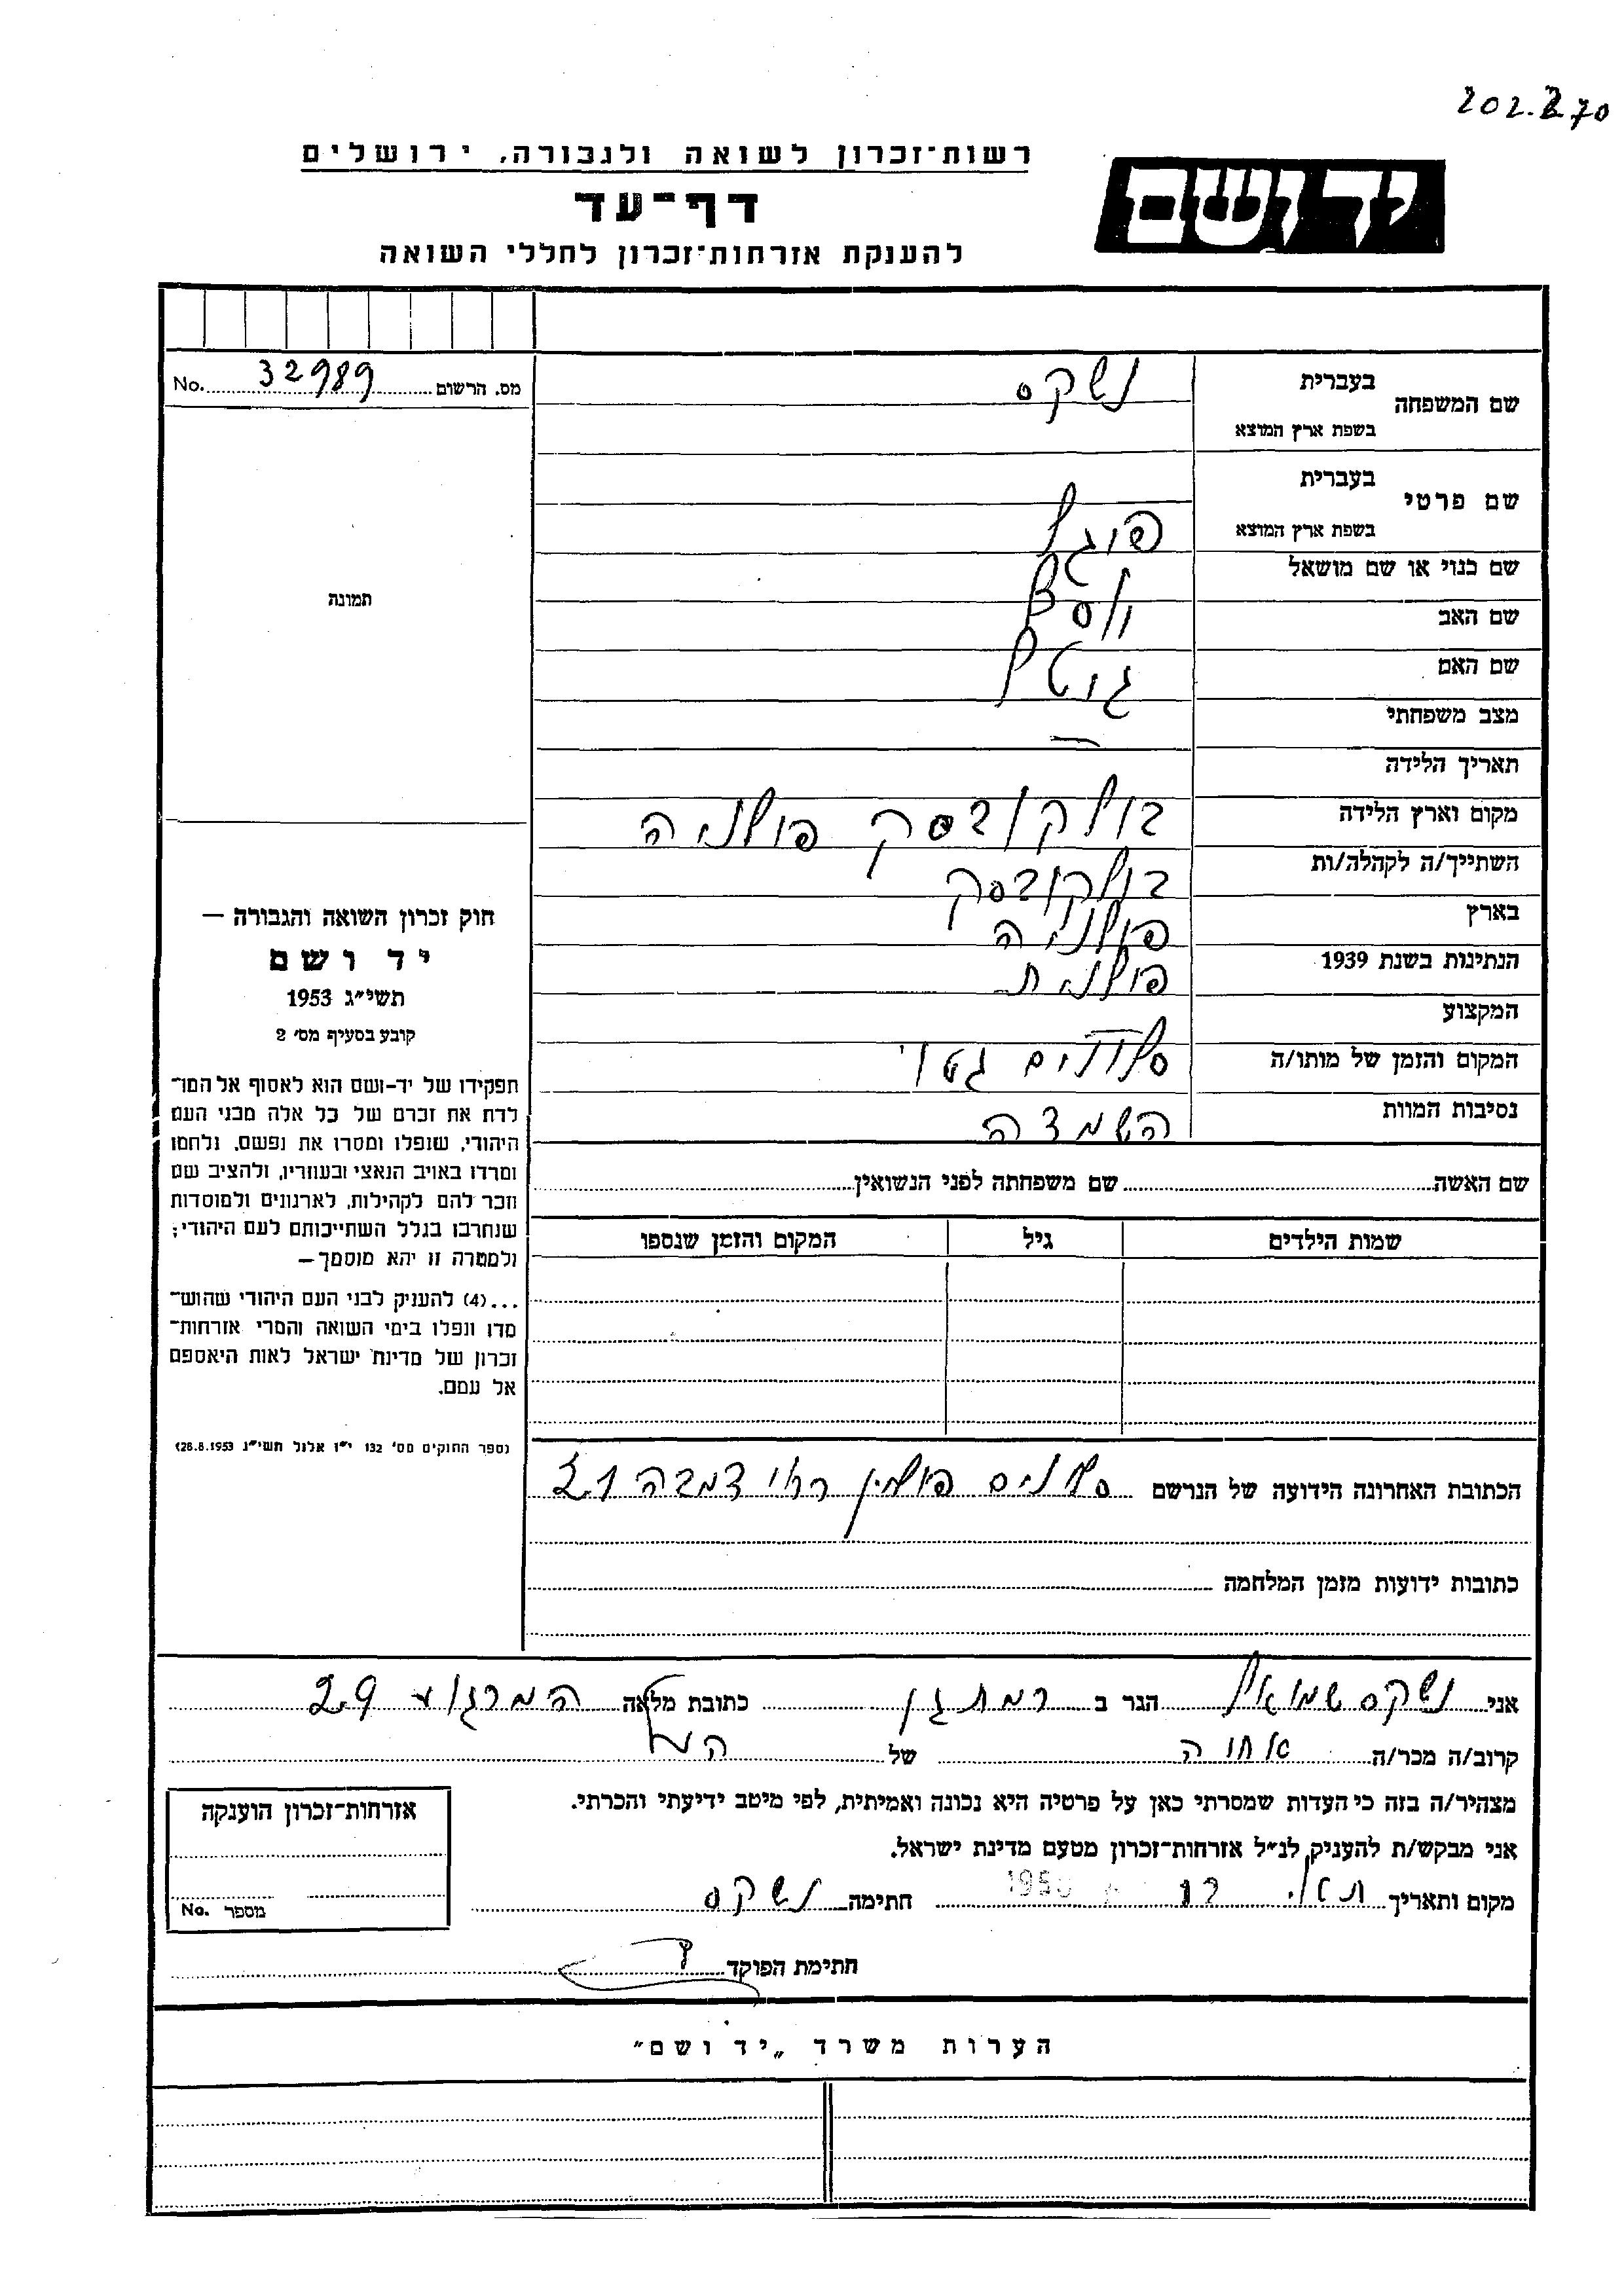 202.2.70
רשות־זכרון לשואה ולגבורה, ירושלים
יד ושם
דף־עד
להענקת אזרחות־זכרון לחללי השואה
מס. הרשום 32989 No.
שם המשפחה בעברית נשקס
בשפת ארץ המוצא
שם פרטי בעברית
בשפת ארץ המוצא פויגל
שם כנוי או שם מושאל
שם האב
שם האם גוטל
מצב משפחתי
תאריך הלידה —
מקום וארץ הלידה וולקובסק פולניה
השתייך/ה לקהלה/ות וולקובסק
בארץ פולניה
הנתינות בשנת 1939 פולנית
המקצוע
המקום והזמן של מותו/ה סלונים גטו
נסיבות המוות השמדה
תמונה
חוק זכרון השואה והגבורה —
יד ושם
תשי״ג 1953
קובע בסעיף מס׳ 2
תפקידו של יד-ושם הוא לאסוף אל המו־
לדת את זכרם של כל אלה מבני העם
היהודי, שנפלו ומסרו את נפשם, נלחמו
ומרדו באויב הנאצי ובעוזריו, ולהציב שם
וזכר להם לקהילות, לארגונים ולמוסדות
שנחרבו בגלל השתייכותם לעם היהודי;
ולמטרה זו יהא מוסמך —
...(4) להעניק לבני העם היהודי שהוש־
מדו ונפלו בימי השואה והמרי אזרחות־
זכרון של מדינת ישראל לאות היאספם
אל עמם.
(ספר החוקים מס׳ 132 י״ז אלול תשי״ג 28.8.1953)
שם האשה שם משפחתה לפני הנשואין
שמות הילדים גיל המקום והזמן שנספו
הכתובת האחרונה הידועה של הנרשם סלונים פולין 21
כתובות ידועות מזמן המלחמה
אני נשקס שמואל הגר ב רמת גן כתובת מלאה המרגוע 29
קרוב/ה מכר/ה אחוה של הנ״ל
מצהיר/ה בזה כי העדות שמסרתי כאן על פרטיה היא נכונה ואמיתית, לפי מיטב ידיעתי והכרתי.
אני מבקש/ת להעניק לנ״ל אזרחות־זכרון מטעם מדינת ישראל.
מקום ותאריך 12 1956 חתימה נשקס
חתימת הפוקד
אזרחות־זכרון הוענקה
מספר No.
הערות משרד „יד ושם״